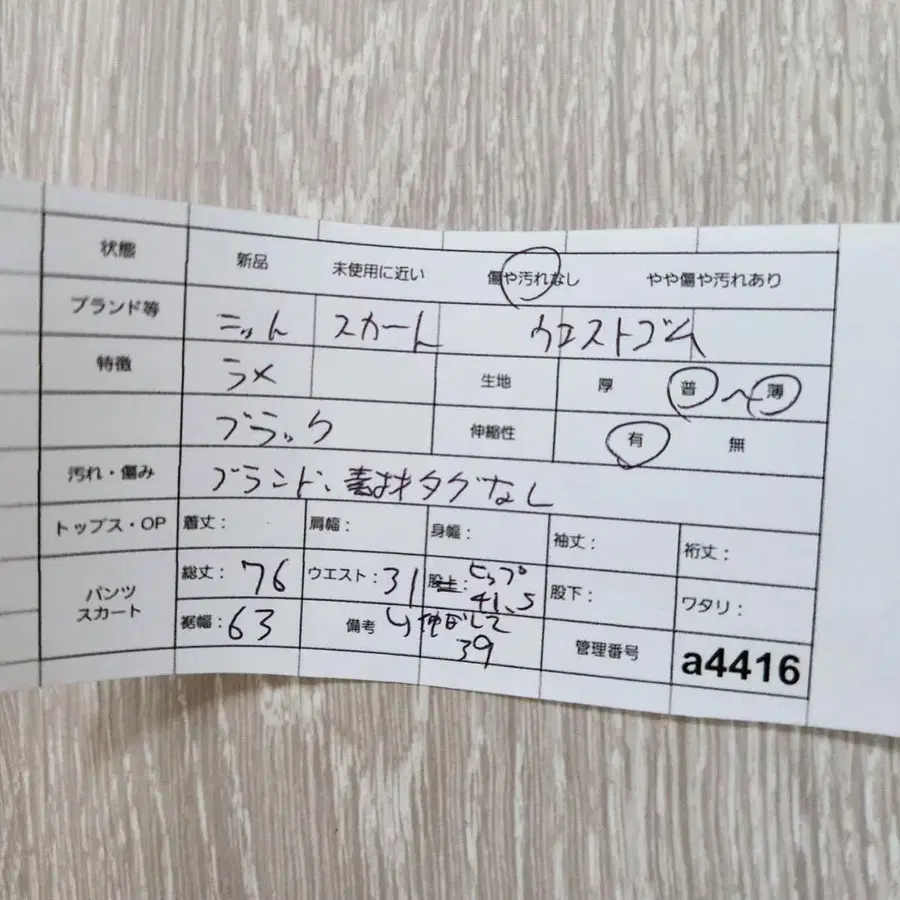 状態 新品 未使用に近い 傷や汚れなし やや傷や汚れあり
ブランド等 ニット スカート ウエストゴム
特徴 ラメ 生地 厚 普 〜 薄
ブラック 伸縮性 有 無
汚れ・傷み ブランド、素材タグなし
トップス・OP 着丈: 肩幅: 身幅: 袖丈: 裄丈:
パンツ スカート 総丈: 76 ウエスト: 31 ヒップ 41.5 股下: ワタリ:
裾幅: 63 備考 伸ばして 39 管理番号 a4416